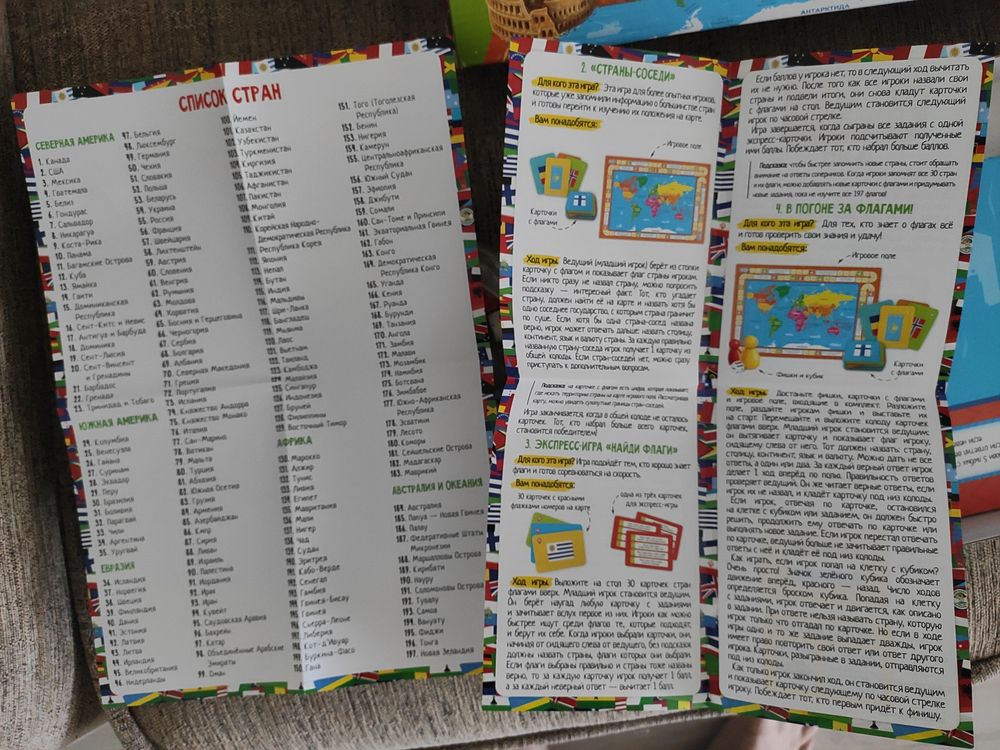 АНТАРКТИДА
СПИСОК СТРАН
СЕВЕРНАЯ АМЕРИКА
1. Канада
2. США
3. Мексика
4. Гватемала
5. Белиз
6. Гондурас
7. Сальвадор
8. Никарагуа
9. Коста-Рика
10. Панама
11. Багамские Острова
12. Куба
13. Ямайка
14. Гаити
15. Доминиканская
Республика
16. Сент-Китс и Невис
17. Антигуа и Барбуда
18. Доминика
19. Сент-Люсия
20. Сент-Винсент
и Гренадины
21. Барбадос
22. Гренада
23. Тринидад и Тобаго
ЮЖНАЯ АМЕРИКА
24. Колумбия
25. Венесуэла
26. Гайана
27. Суринам
28. Эквадор
29. Перу
30. Бразилия
31. Боливия
32. Парагвай
33. Чили
34. Аргентина
35. Уругвай
ЕВРАЗИЯ
36. Исландия
37. Норвегия
38. Швеция
39. Финляндия
40. Дания
41. Эстония
42. Латвия
43. Литва
44. Ирландия
45. Великобритания
46. Нидерланды
47. Бельгия
48. Люксембург
49. Германия
50. Чехия
51. Словакия
52. Польша
53. Беларусь
54. Украина
55. Россия
56. Франция
57. Швейцария
58. Лихтенштейн
59. Австрия
60. Словения
61. Венгрия
62. Румыния
63. Молдова
64. Хорватия
65. Босния и Герцеговина
66. Черногория
67. Сербия
68. Болгария
69. Албания
70. Северная Македония
71. Греция
72. Португалия
73. Испания
74. Княжество Андорра
75. Княжество Монако
76. Италия
77. Сан-Марино
78. Ватикан
79. Мальта
80. Турция
81. Абхазия
82. Южная Осетия
83. Грузия
84. Армения
85. Азербайджан
86. Кипр
87. Сирия
88. Ливан
89. Израиль
90. Палестина
91. Иордания
92. Ирак
93. Иран
94. Кувейт
95. Саудовская Аравия
96. Бахрейн
97. Катар
98. Объединённые Арабские
Эмираты
99. Оман
100. Йемен
101. Казахстан
102. Узбекистан
103. Туркменистан
104. Киргизия
105. Таджикистан
106. Афганистан
107. Пакистан
108. Монголия
109. Китай
110. Корейская Народно-
Демократическая Республика
111. Республика Корея
112. Япония
113. Непал
114. Бутан
115. Индия
116. Мальдивы
117. Шри-Ланка
118. Бангладеш
119. Мьянма
120. Лаос
121. Вьетнам
122. Таиланд
123. Камбоджа
124. Малайзия
125. Сингапур
126. Индонезия
127. Бруней
128. Филиппины
129. Восточный Тимор
АФРИКА
130. Марокко
131. Алжир
132. Тунис
133. Ливия
134. Египет
135. Мавритания
136. Мали
137. Нигер
138. Чад
139. Судан
140. Эритрея
141. Кабо-Верде
142. Сенегал
143. Гамбия
144. Гвинея-Бисау
145. Гвинея
146. Сьерра-Леоне
147. Либерия
148. Кот-д'Ивуар
149. Буркина-Фасо
150. Гана
151. Того (Тоголезская
Республика)
152. Бенин
153. Нигерия
154. Камерун
155. Центральноафриканская
Республика
156. Южный Судан
157. Эфиопия
158. Джибути
159. Сомали
160. Сан-Томе и Принсипи
161. Экваториальная Гвинея
162. Габон
163. Конго
164. Демократическая
Республика Конго
165. Уганда
166. Кения
167. Руанда
168. Бурунди
169. Танзания
170. Ангола
171. Замбия
172. Малави
173. Мозамбик
174. Намибия
175. Ботсвана
176. Зимбабве
177. Южно-Африканская
Республика
178. Эсватини
179. Лесото
180. Коморы
181. Сейшельские Острова
182. Мадагаскар
183. Маврикий
АВСТРАЛИЯ И ОКЕАНИЯ
184. Австралия
185. Папуа — Новая Гвинея
186. Палау
187. Федеративные Штаты
Микронезии
188. Маршалловы Острова
189. Кирибати
190. Науру
191. Соломоновы Острова
192. Тувалу
193. Самоа
194. Вануату
195. Фиджи
196. Тонга
197. Новая Зеландия
2. «СТРАНЫ-СОСЕДИ»
Для кого эта игра? Эта игра для более опытных игроков,
которые уже запомнили информацию о большинстве стран
и готовы перейти к изучению их положения на карте.
Вам понадобятся:
Игровое поле
Карточки
с флагами
Ход игры. Ведущий (младший игрок) берёт из стопки
карточку с флагом и показывает флаг страны игрокам.
Если никто сразу не назвал страну, можно попросить
подсказку — интересный факт. Тот, кто угадает
страну, должен найти её на карте и назвать хотя бы
одно соседнее государство, с которым страна граничит
по суше. Если хотя бы одна страна-сосед названа
верно, игрок может отвечать дальше: назвать столицу,
континент, язык и валюту страны. За каждую правильно
названную страну-соседа игрок получает 1 карточку из
общей колоды. Если стран-соседей нет, можно сразу
приступать к дополнительным вопросам.
Подсказка: на карточке с флагом есть цифра, которая показывает,
где искать территорию страны на карте игрового поля. Рассматривая
карту, можно увидеть сухопутные границы стран-соседей.
Игра заканчивается, когда в общей колоде не осталось
карточек. Тот, кто набрал больше всего карточек,
становится победителем!
3. ЭКСПРЕСС-ИГРА «НАЙДИ ФЛАГИ»
Для кого эта игра? Игра подойдёт тем, кто хорошо знает
флаги и готов соревноваться на скорость.
Вам понадобятся:
30 карточек с красными
флажками номеров на карте
одна из трёх карточек
для экспресс-игры
Ход игры. Выложите на стол 30 карточек стран
флагами вверх. Младший игрок становится ведущим.
Он берёт наугад любую карточку с заданиями
и зачитывает вслух первое из них. Игроки как можно
быстрее ищут среди флагов те, которые подходят,
и берут их себе. Когда игроки выбрали карточки, они,
начиная от сидящего слева от ведущего, без подсказок
должны назвать страны, флаги которых они выбрали.
Если флаги выбраны правильно и страны тоже названы
верно, то за каждую карточку игрок получает 1 балл,
а за каждый неверный ответ — вычитает 1 балл.
Если баллов у игрока нет, то в следующий ход вычитать
их не нужно. После того как все игроки назвали свои
страны и подвели итоги, они снова кладут карточки
с флагами на стол. Ведущим становится следующий
игрок по часовой стрелке.
Игра завершается, когда сыграны все задания с одной
экспресс-карточки. Игроки подсчитывают полученные
ими баллы. Побеждает тот, кто набрал больше баллов.
Подсказка: чтобы быстрее запомнить новые страны, стоит обращать
внимание на ответы соперников. Когда игроки запомнят все 30 стран
и их флаги, можно добавлять новые карточки с флагами и придумывать
новые задания, пока не изучите все 197 флагов!
4. В ПОГОНЕ ЗА ФЛАГАМИ!
Для кого эта игра? Для тех, кто знает о флагах всё
и готов проверить свои знания и удачу!
Вам понадобятся:
Игровое поле
Фишки и кубик
Карточки
с флагами
Ход игры. Достаньте фишки, карточки с флагами
и игровое поле, входящие в комплект. Разложите
поле, раздайте игрокам фишки и выставьте их
на старт. Перемешайте и положите колоду карточек
флагами вверх. Младший игрок становится ведущим,
он вытягивает карточку и показывает флаг игроку,
сидящему слева от него. Тот должен назвать: страну,
столицу, континент, язык и валюту. Можно дать не все
ответы, а один или два. За каждый верный ответ игрок
делает 1 ход вперёд по полю. Правильность ответов
проверяет ведущий. Он же читает верные ответы, если
игрок их не назвал, и кладёт карточку под низ колоды.
Если игрок, отвечая по карточке, остановился
на клетке с кубиком или заданием, он должен быстро
решить, продолжать ему отвечать по карточке или
выполнять новое задание. Если игрок перестал отвечать
по карточке, ведущий больше не зачитывает правильные
ответы с неё и кладёт её под низ колоды.
Как играть, если игрок попал на клетку с кубиком?
Очень просто! Значок зелёного кубика обозначает
движение вперёд, красного — назад. Число ходов
определяется броском кубика. Попадая на клетку
с заданиями, игрок отвечает и двигается, как описано
в задании. При ответе нельзя называть страну, которую
игрок только что отгадал по карточке. Но если в ходе
игры одно и то же задание выпадает дважды, игрок
имеет право повторить свой ответ или ответ другого
игрока. Карточки, разыгранные в задании, отправляются
под низ колоды.
Как только игрок закончил ход, он становится ведущим
и показывает карточку следующему по часовой стрелке
игроку. Побеждает тот, кто первым придёт к финишу.